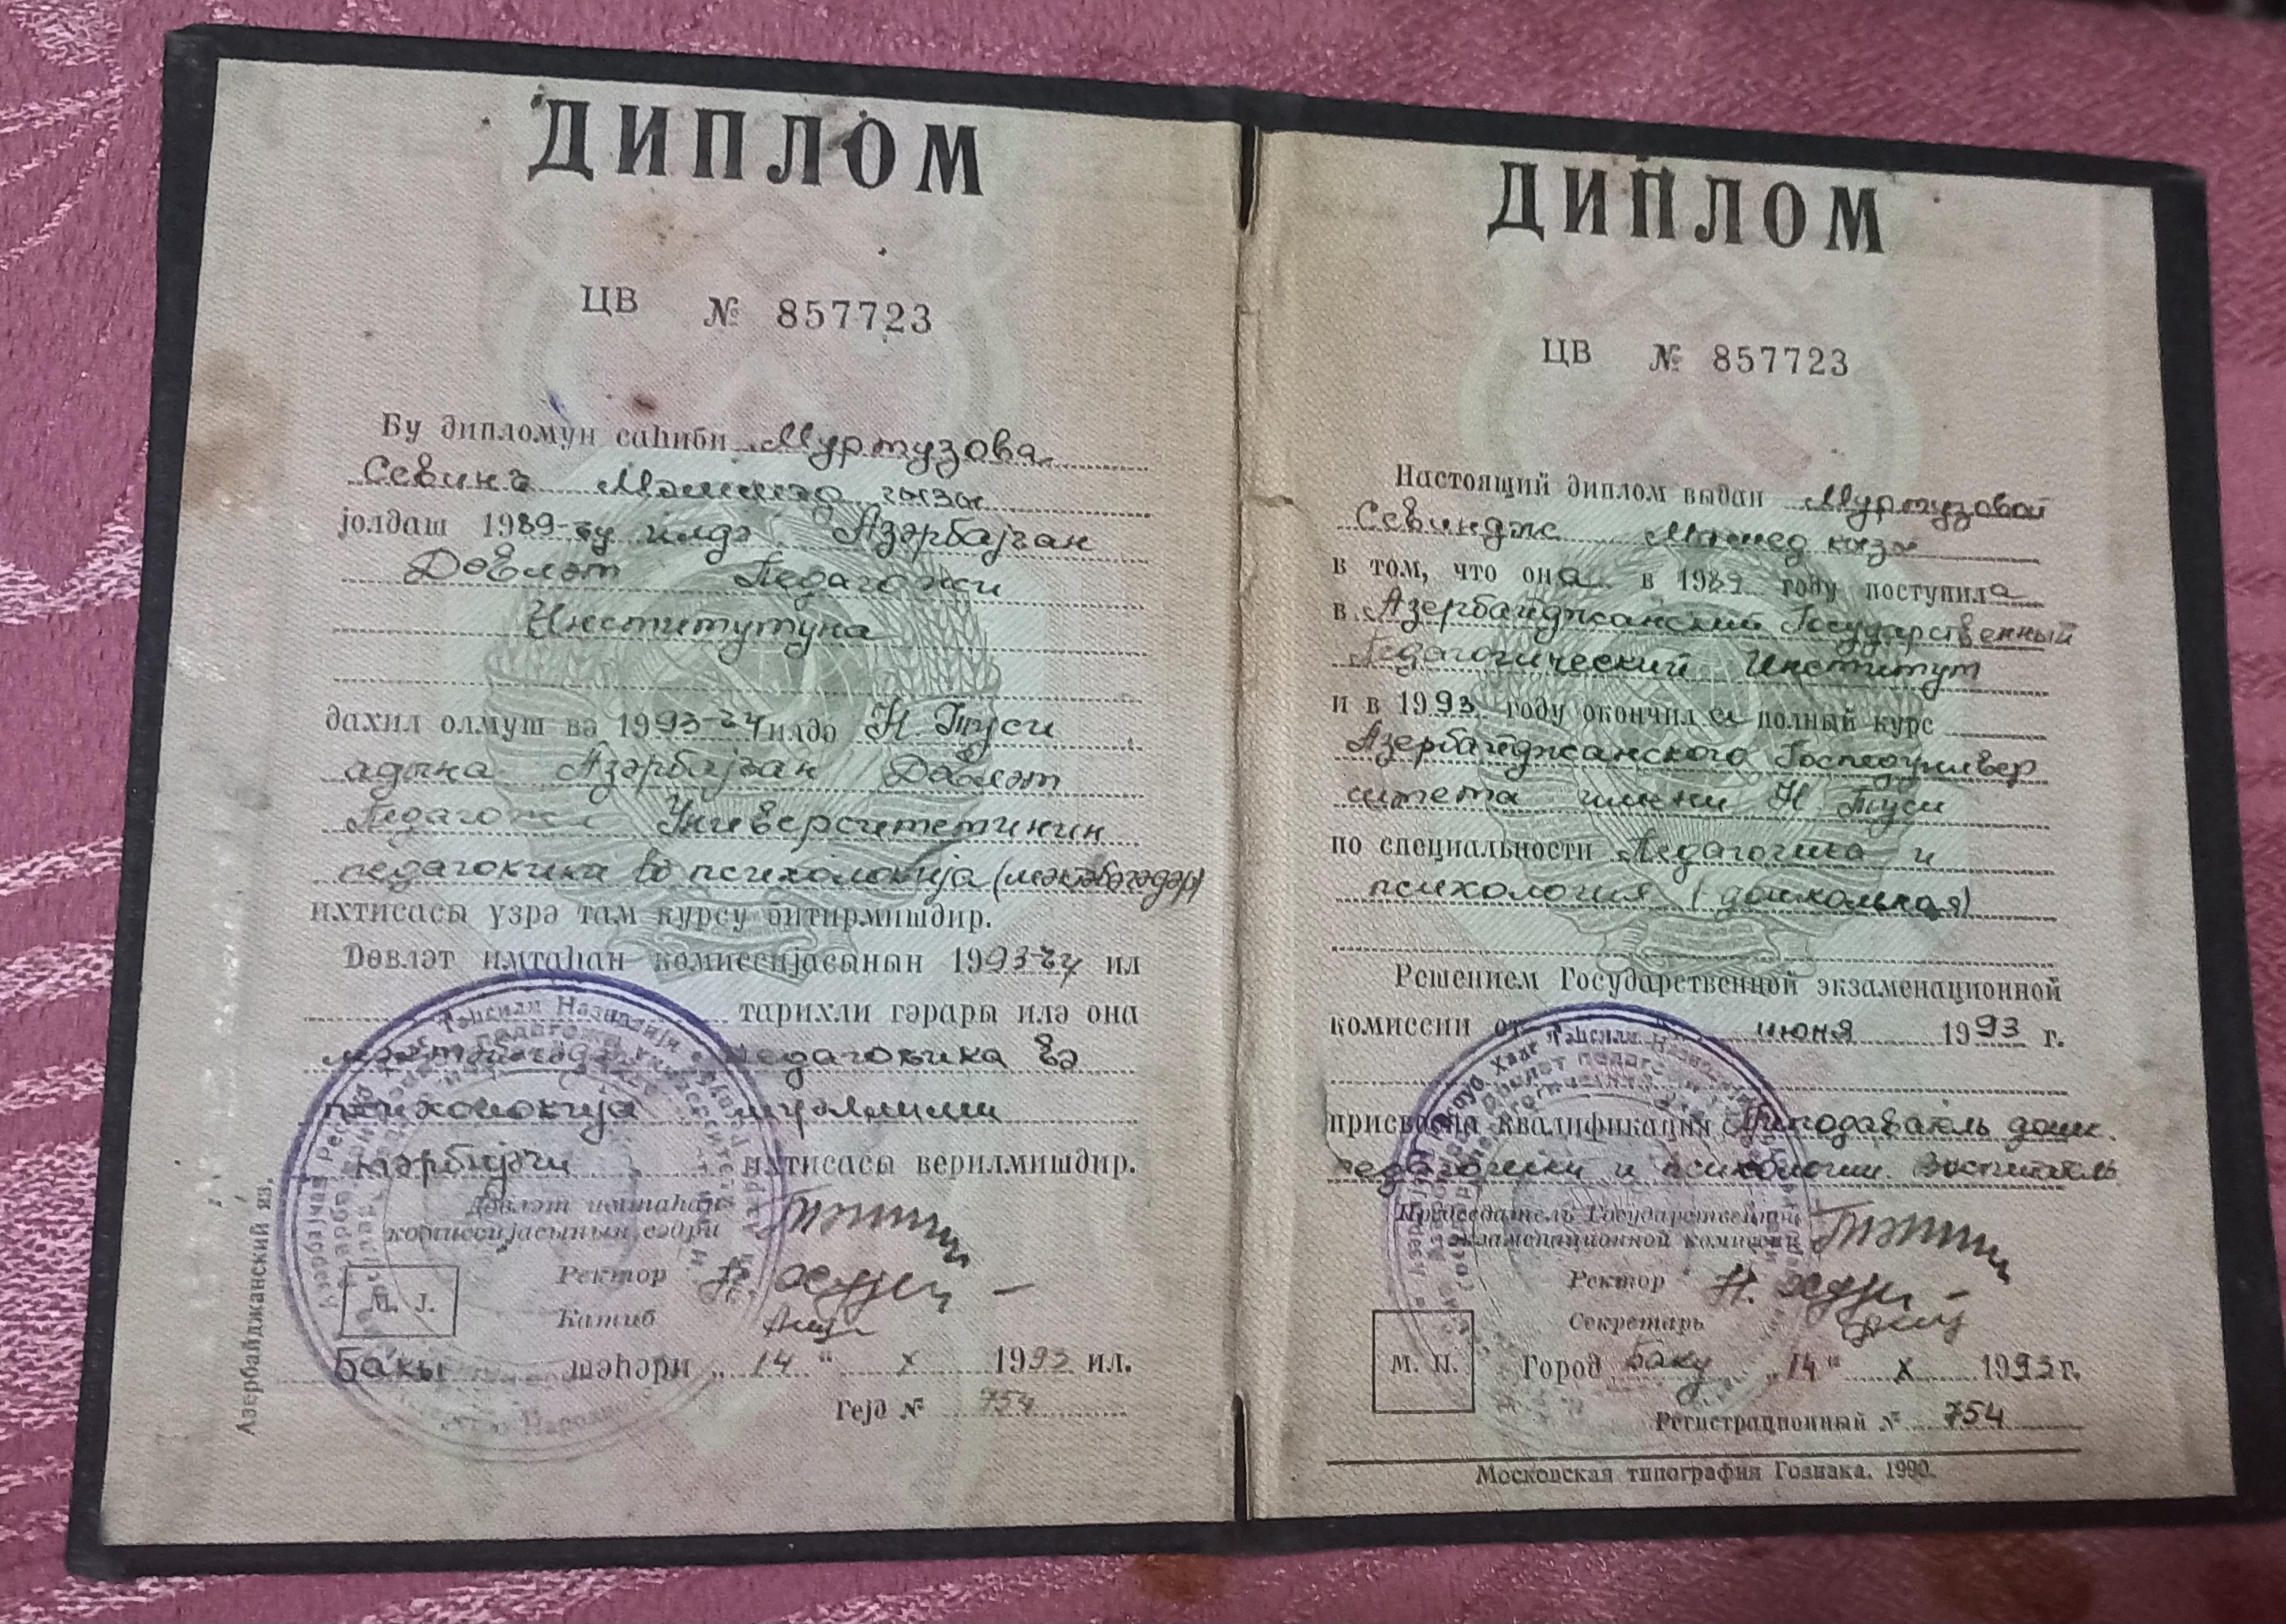 ДИПЛОМ
ЦВ № 857723
Бу дипломун саһиби Муртузова
Севинҹ Мәммәд гызы
јолдаш 1989-ҹу илдә Азәрбајҹан
Дөвләт Педагожи
Институтуна
дахил олмуш вә 1993-ҹү илдә Н. Туси
адына Азәрбајҹан Дөвләт
Педагожи Университетинин
педагокика вә психолокија (мәктәбәгәдәр)
ихтисасы үзрә там курсу битирмишдир.
Дөвләт имтаһан комиссијасынын 1993-ҹү ил
тарихли гәрары илә она
мәктәбәгәдәр педагокика вә
психолокија мүәллими
тәрбијәчи ихтисасы верилмишдир.
Дөвләт имтаһан
комиссијасынын сәдри
Ректор
Катиб
М. Ј.
Бакы шәһәри „14“ X 1993 ил.
Гејд № 754
Азербайджанский яз.
ДИПЛОМ
ЦВ № 857723
Настоящий диплом выдан Муртузовой
Севиндж Мамед кызы
в том, что она в 1989 году поступила
в Азербайджанский Государственный
Педагогический Институт
и в 1993 году окончила полный курс
Азербайджанского Госпедунивер
ситета имени Н. Туси
по специальности Педагогика и
психология (дошкольная)
Решением Государственной экзаменационной
комиссии от июня 1993 г.
присвоена квалификация Преподаватель дошк.
педагогики и психологии. Воспитатель
Председатель Государственной
экзаменационной комиссии
Ректор
Секретарь
М. П.
Город Баку „14“ X 1993 г.
Регистрационный № 754
Московская типография Гознака. 1990.